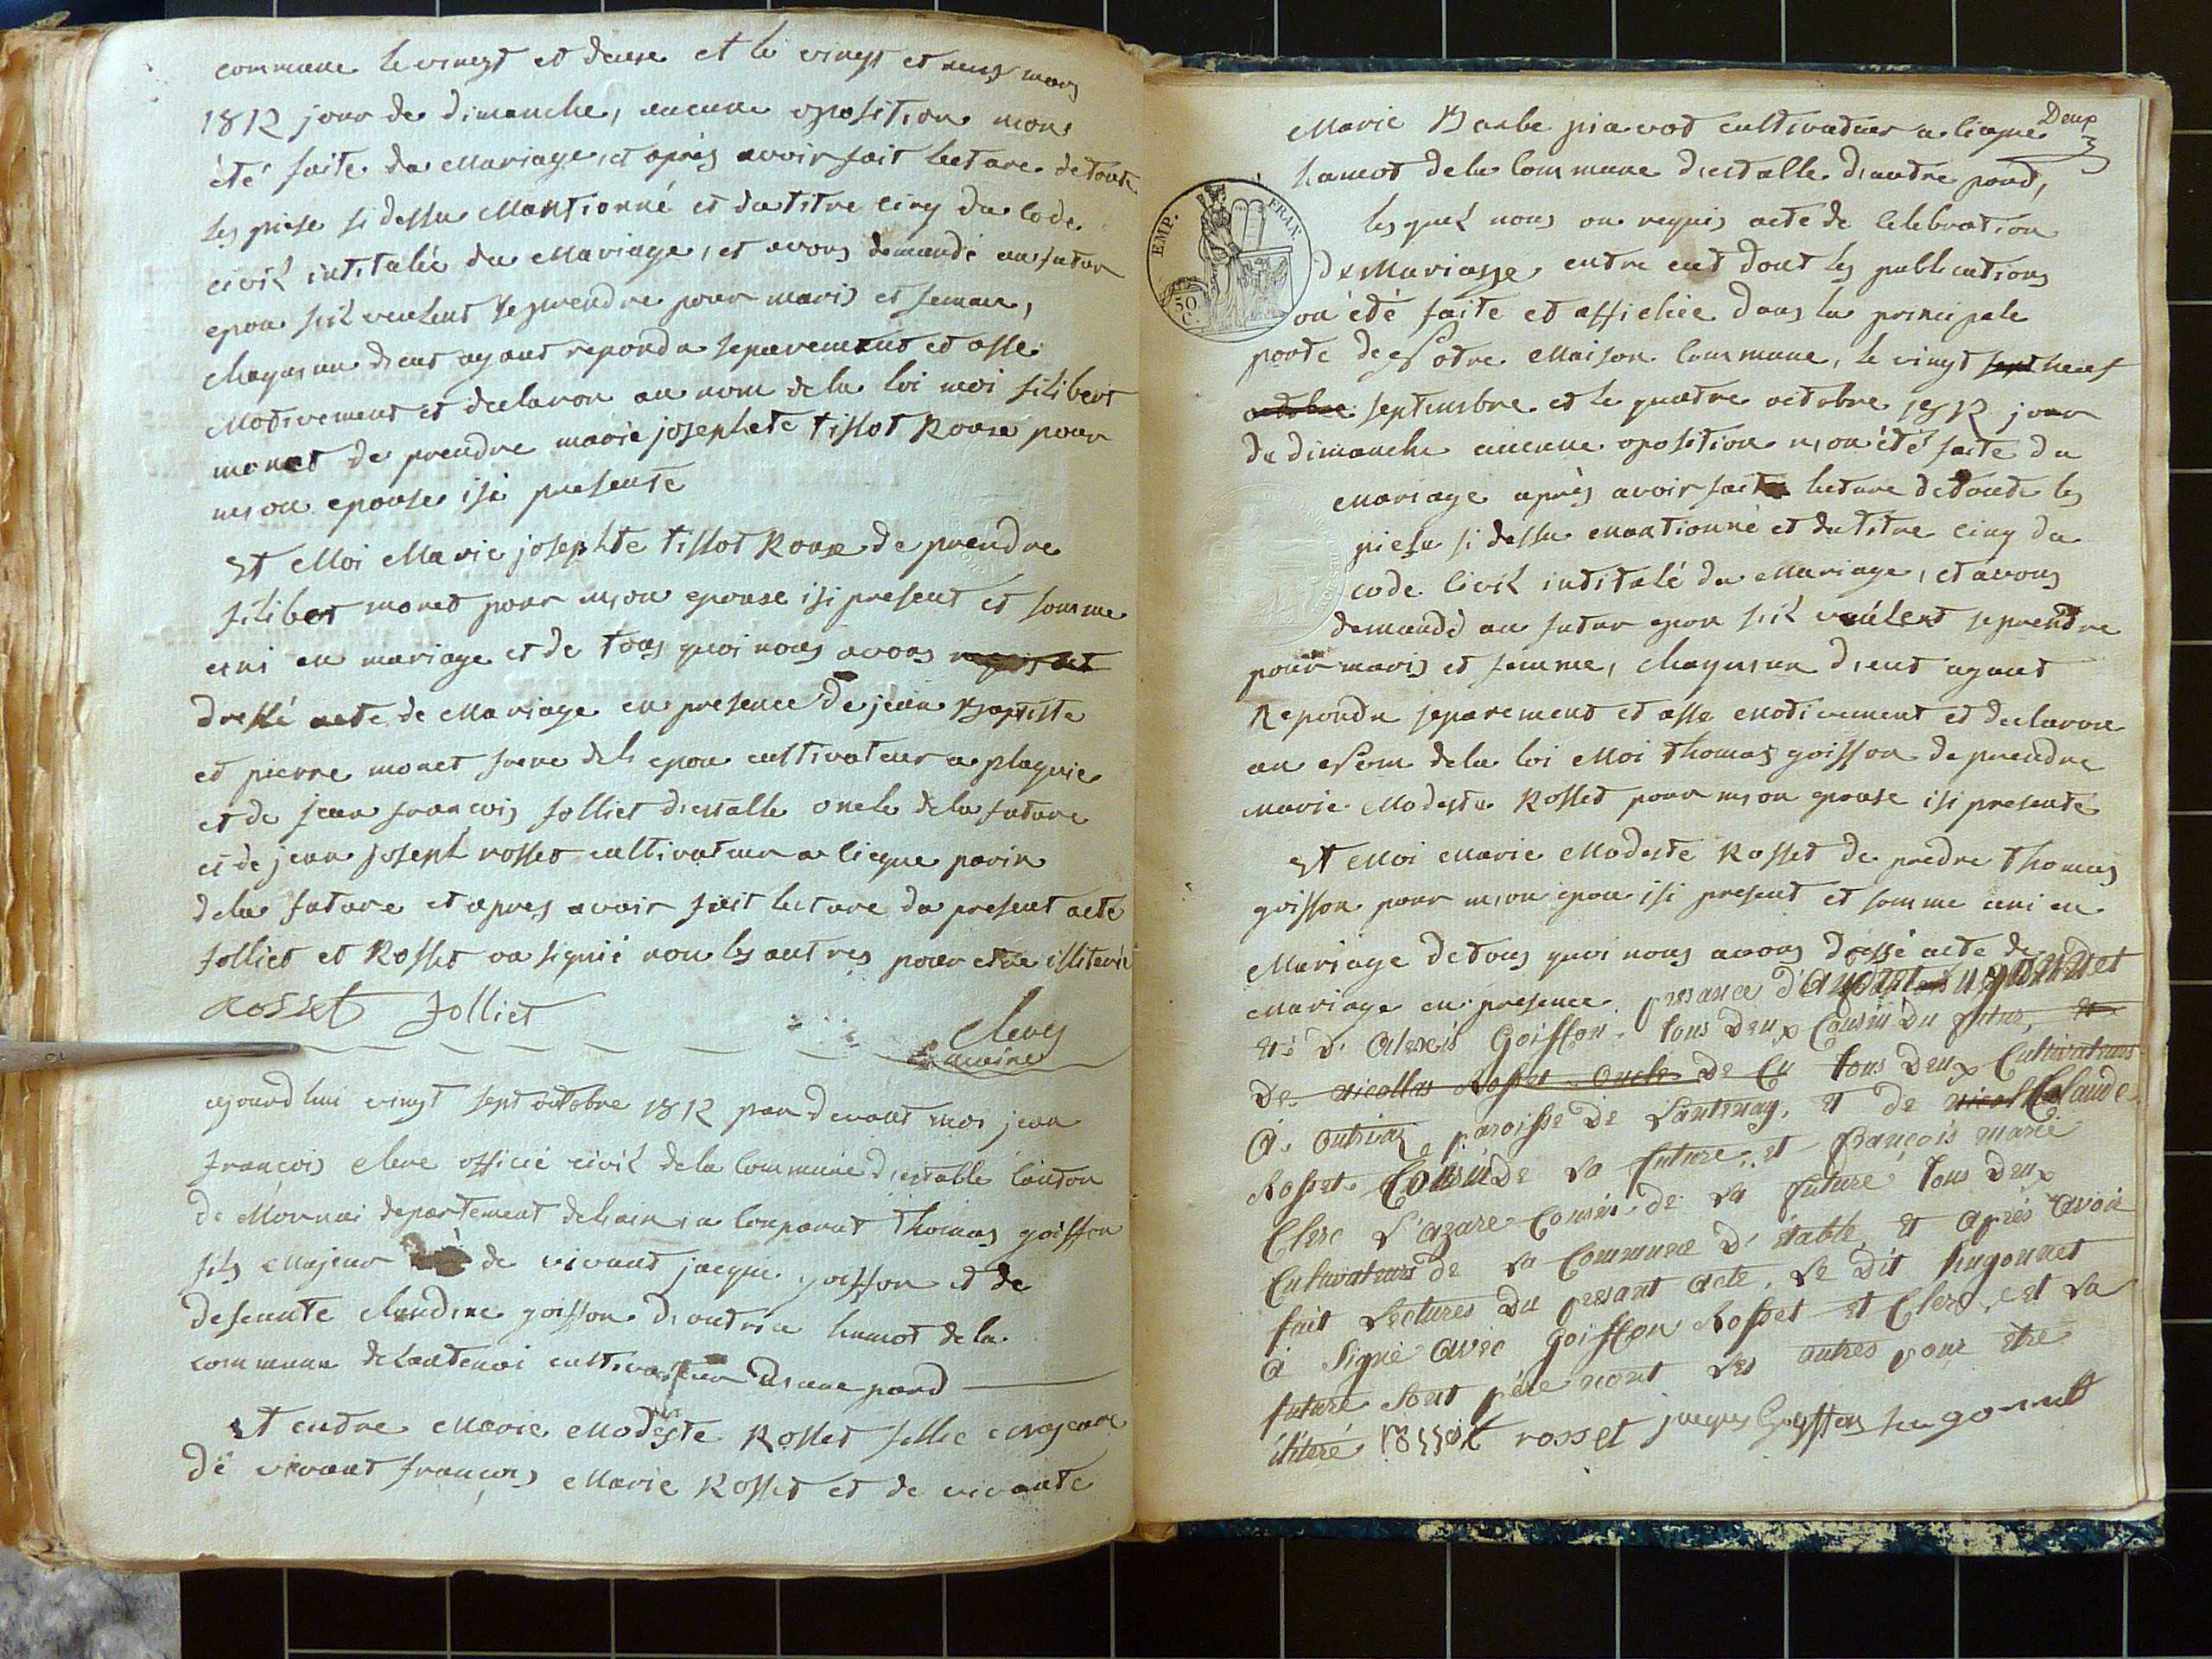 commune le vingt et deuse et le vingt et neuf mars
1812 jour de dimanche, aucune oposition mons
été faite du Mariage, et après avoir fait lecture de toute
les piese si dessu Mantionné et du titre cinq du Code
civil intitulée du Mariage, et avons demandé au futur
epou sil veulent se prendre pour maris et femme,
chaqunun deut ayant repondu separement et affe
Motivement et declaron au nom de la loi moi filibert
monet de prendre marie josephete tissot Rouse pour
mon epouse isi presente
Et Moi Marie josephte tissot Roux de prendre
filibert monet pour mon epouse isi present et somme
uni en mariage et de tous quoi nous avons
dressé acte de Mariage en presence de jean Baptiste
et pierre monet frere de l epou cultivateur a plagnie
et de jean françois Jolliet d'estalle oncle de la future
et de jean joseph rosset cultivateur a licque parin
de la future et apres avoir fait lecture du present acte
Jolliet et Rosset on signié non les autres pour etre illiteré
Rosset Jolliet
Clerc
maire
ajourd hui vingt sept octobre 1812 par devant moi jean
françois clerc officié civil de la Commune d'estable Canton
de Mornai departement de lain a comparut Thomas goiffon
fils Majeur de vivant jacque goiffon et de
defeunte claudine goiffon d'outria hamot de la
commune de Lantenai cultivateur d'une pard
Et entre Marie Modeste Rosset fillie Majeure
de vivant françois Marie Rosset et de vivante
Deux
Marie Barbe pia vot cultivateur a licque
hamot de la Commune d'estalle d'autre pard,
EMP. FRAN.
50 C.
les quel nous on requis acte de Celebration
de Mariage entre eut dont les publications
on été faite et affichée dans la principale
porte de Notre Maison Commune, le vingt sept neuf
octobre septembre et le quatre octobre 1812 jour
de dimanche aucune oposition n'on été faite du
Mariage après avoir fait lecture de toute les
piese si dessu mantionné et du titre cinq du
code Civil intitulé du Mariage, et avons
demandé au futur epou sil veulent se prendre
pour maris et femme, chaqunun d'eut ayant
Repondu separement et affe motivement et declaron
au Nom de la loi Moi Thomas goiffon de prendre
Marie Modeste Rosset pour mon epouse isi presente
Et Moi Marie Modeste Rosset de predre Thomas
goiffon pour mon epou isi present et somme uni en
Mariage de tous quoi nous avons dressé acte de
Mariage en presence presance
et d'Alexis Goiffon tous Deux Cousin du futur, et
De Nicollas Rosset oncle De Cu tous Deux Cultivateurs
à outriaz paroisse De Lantenay, et de Claude
Rosset Cousin De La future, et françois marie
Clerc L'azare Cousin de La future tous Deux
Cultivateurs de La Commune D'étable, et après avoir
fait Lectures Du presant acte, Le Dit hugonnet
à Signé avec Goiffon Rosset et Clerc, et La
future Sont père nont Les autres pour être
illiteré rosset jacques Goiffon hugonnet